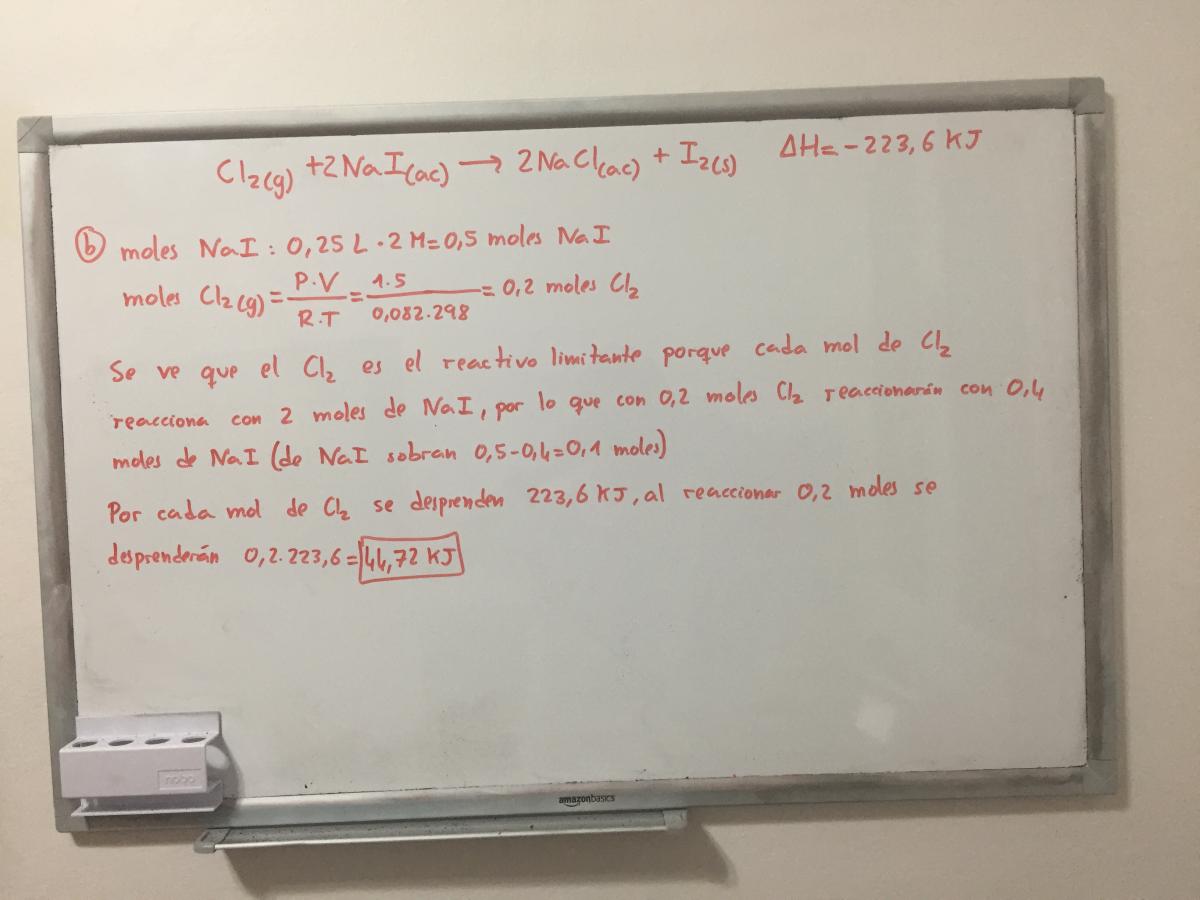 Cl₂(g) + 2NaI(ac) → 2NaCl(ac) + I₂(s) ΔH = -223,6 KJ
ⓑ moles NaI : 0,25 L · 2 M = 0,5 moles NaI
moles Cl₂(g) = P·V / R.T = 1.5 / 0,082.298 = 0,2 moles Cl₂
Se ve que el Cl₂ es el reactivo limitante porque cada mol de Cl₂
reacciona con 2 moles de NaI, por lo que con 0,2 moles Cl₂ reaccionarán con 0,4
moles de NaI (de NaI sobran 0,5-0,4=0,1 moles)
Por cada mol de Cl₂ se desprenden 223,6 KJ, al reaccionar 0,2 moles se
desprenderán 0,2.223,6 = 44,72 KJ
nobo
amazonbasics